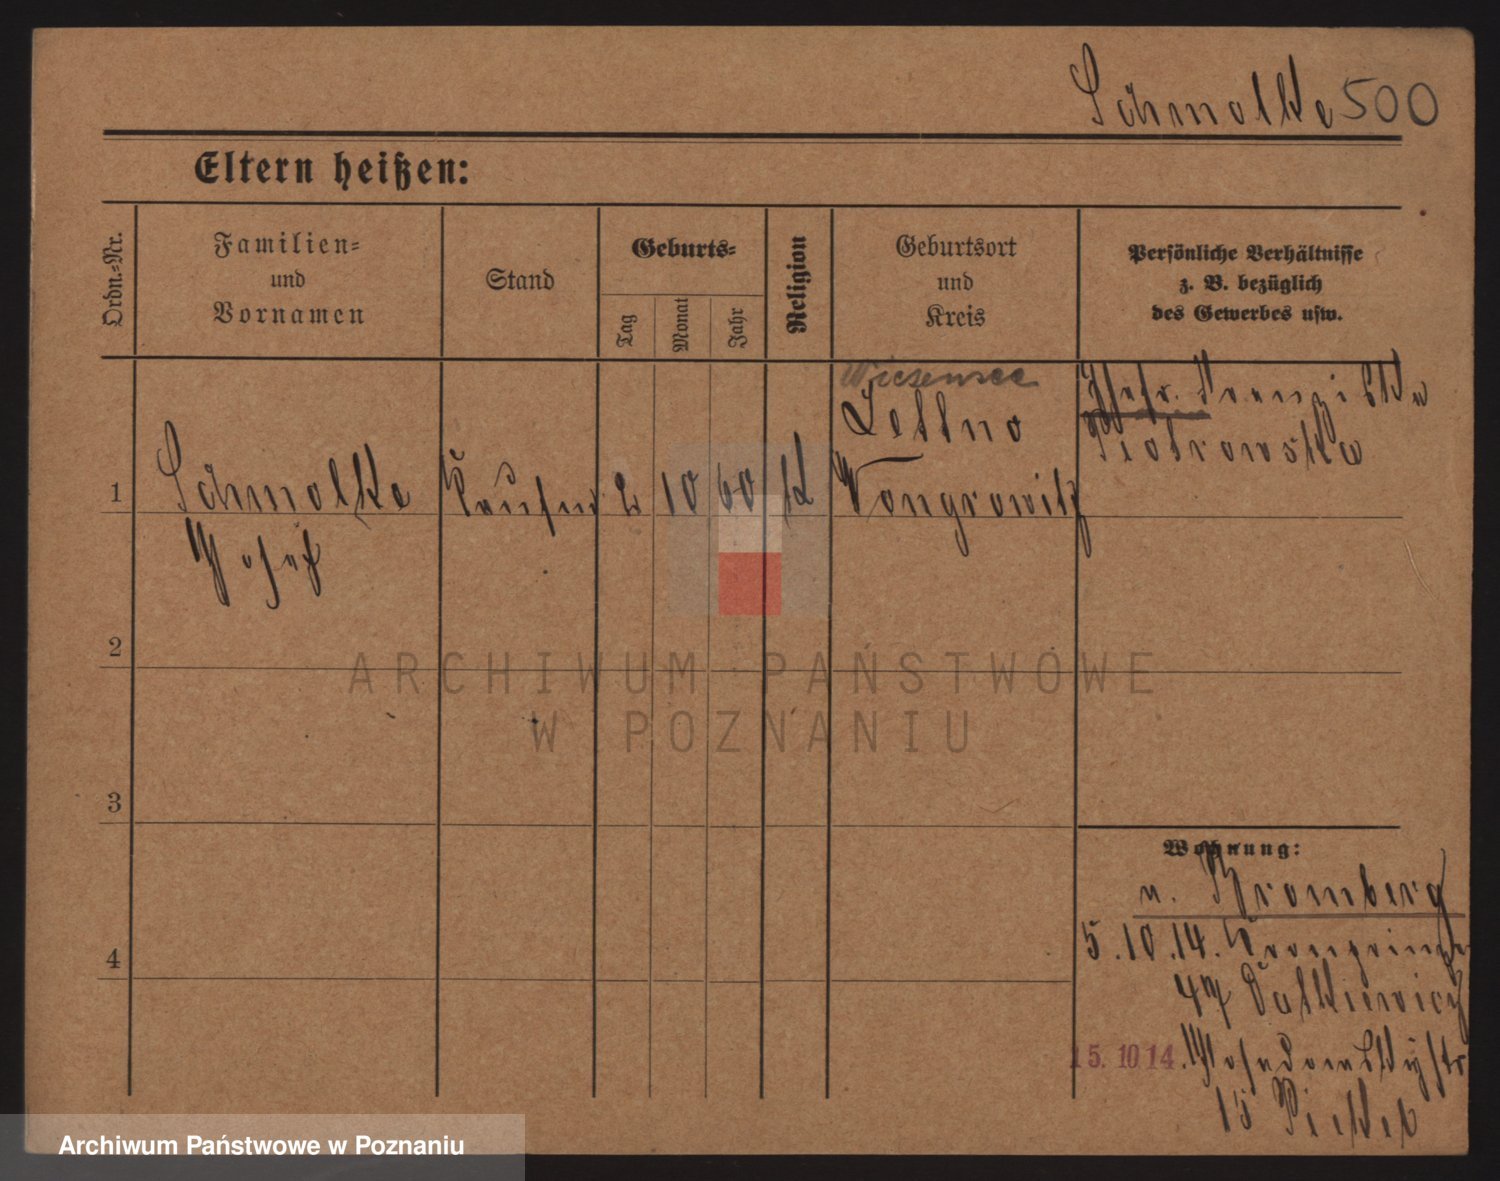 Schmolke 500
Eltern heißen:
Ordn.-Nr.
Familien-
und
Vornamen
Stand
Geburts-
Tag
Monat
Jahr
Religion
Geburtsort
und
Kreis
Persönliche Verhältnisse
z. B. bezüglich
des Gewerbes usw.
Wiesensee
1
Schmolke
Josef
2 10 60 K
Wongrowitz
Ehefr. Franziska
Piotrowska
2
3
4
Wohnung:
n. Bromberg
5.10.14. Kronprinz
47
15. 10 14.
15
ARCHIWUM PAŃSTWOWE
W POZNANIU
Archiwum Państwowe w Poznaniu